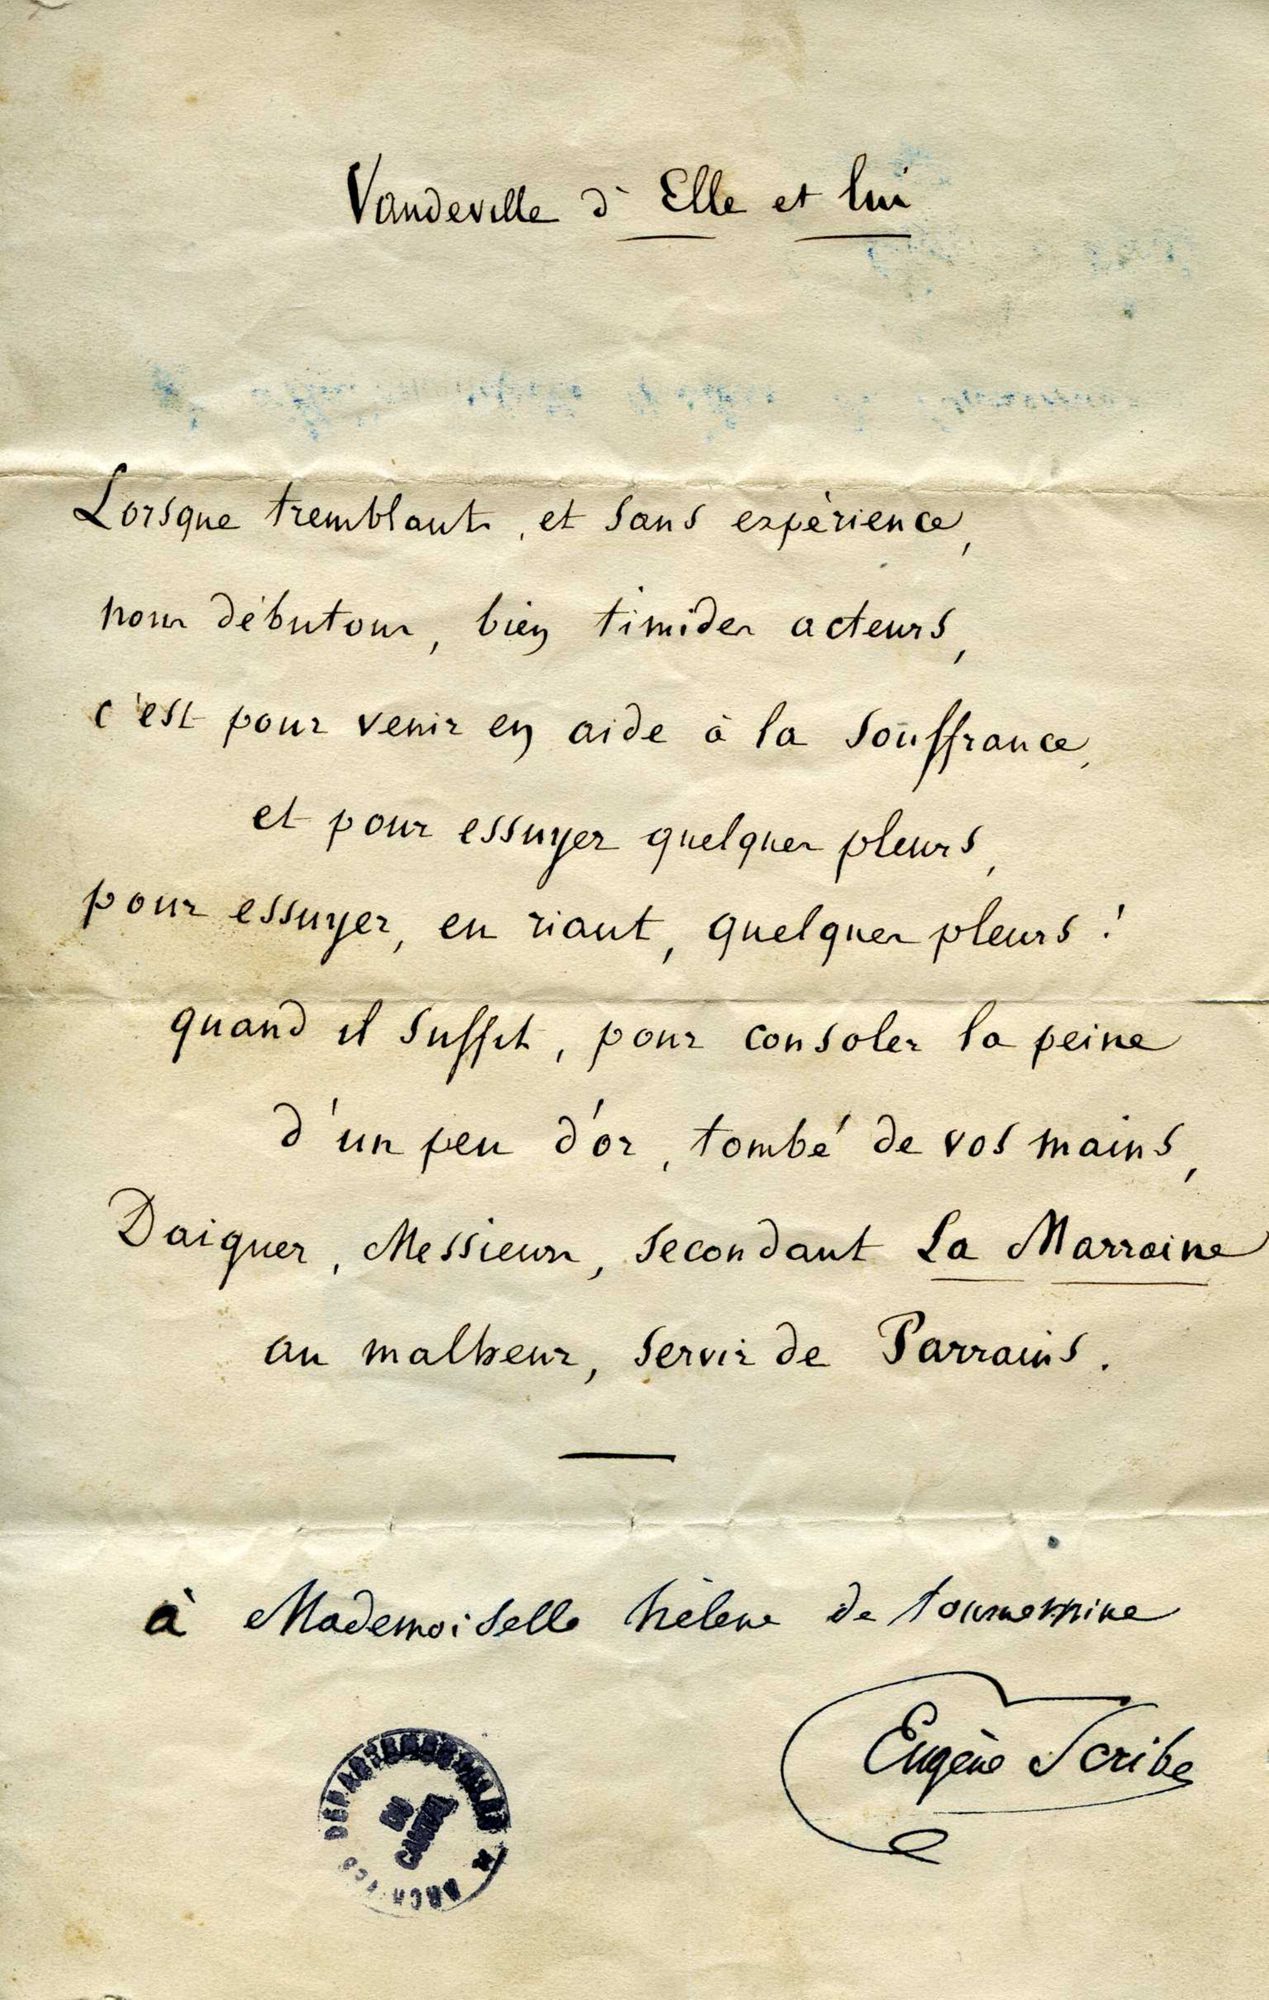 Vaudeville d'Elle et lui
Lorsque tremblants, et sans expérience,
nous débutons, bien timides acteurs,
c'est pour venir en aide à la souffrance,
et pour essuyer quelques pleurs,
pour essuyer, en riant, quelques pleurs !
quand il suffit, pour consoler la peine
d'un peu d'or, tombé de vos mains,
Daignez, Messieurs, secondant La Marraine
au malheur, servir de Parrains.
à Mademoiselle hélène de tournemine
Eugène Scribe
ARCHIVES DÉPARTEMENTALES
DU
CANTAL